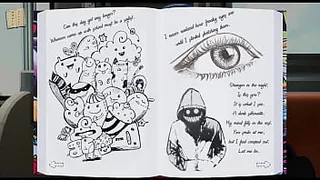 Can this day get any longer?
Whoever came up with school must be a sadist!
I never realized how freaky eyes are
until I started sketching them.
Stranger in the night,
Is this you?
It is what I see.
A dark silhouette.
My mind fills in the rest.
You smile at me,
but I feel creeped out.
Let me be.